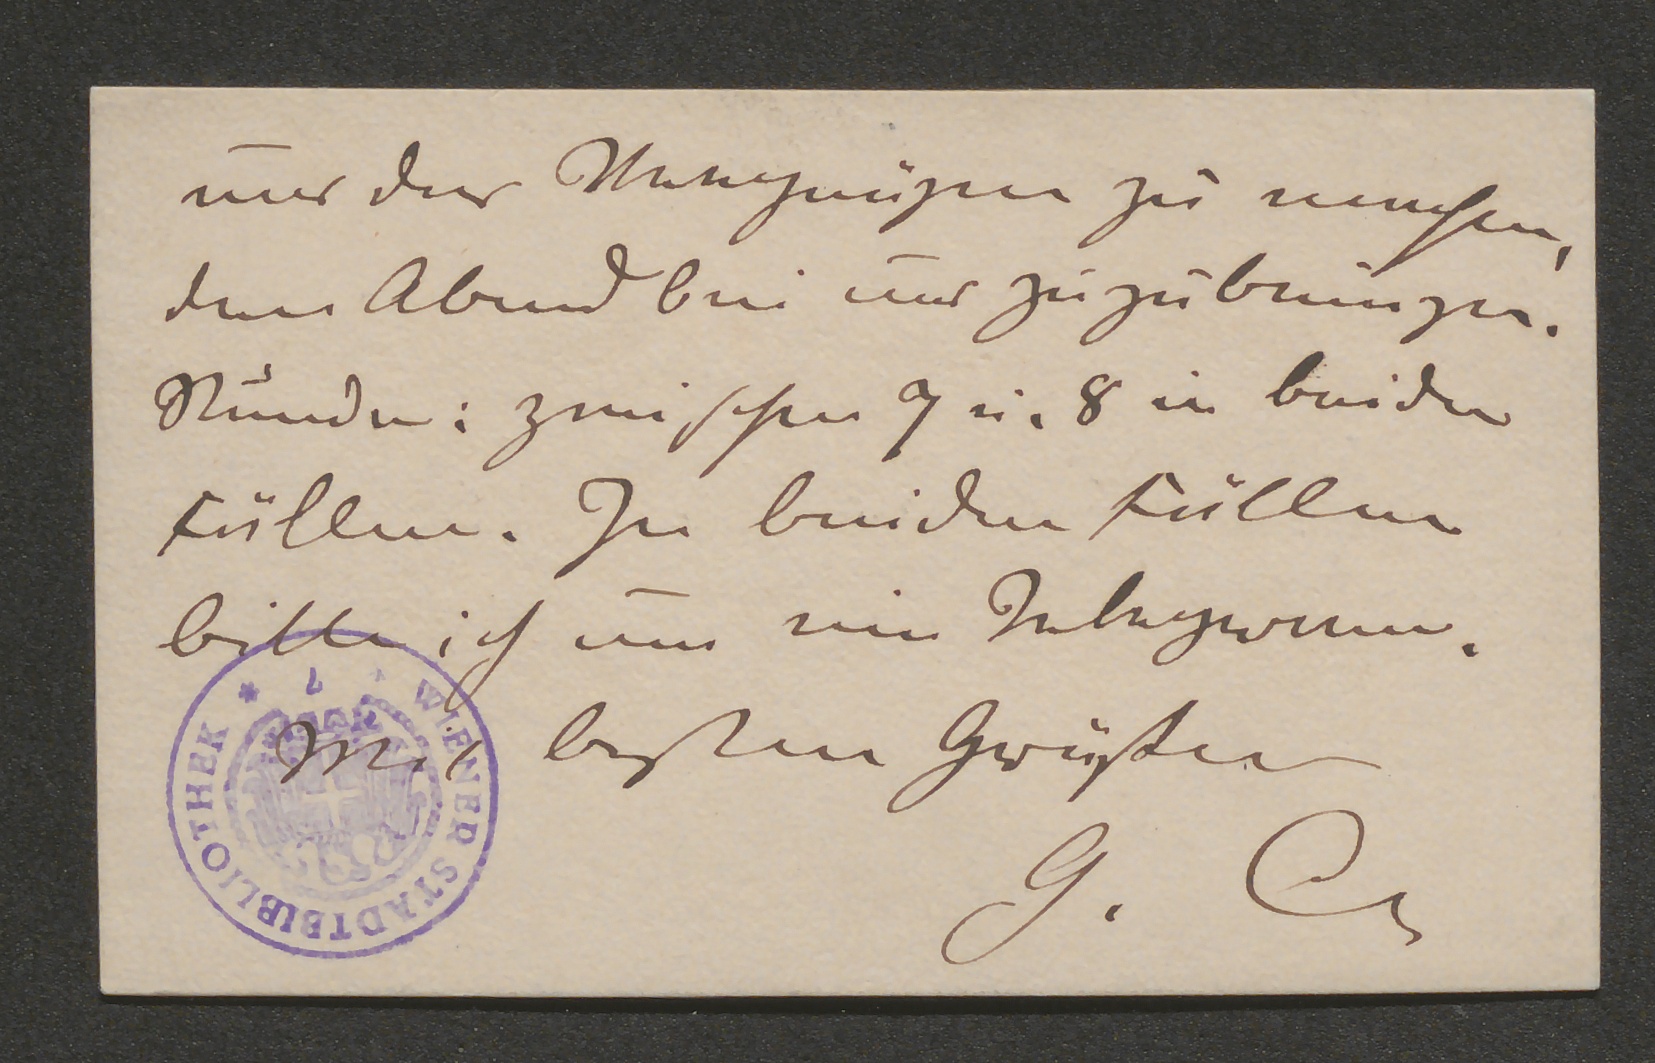 uns das Vergnügen zu machen,
den Abend bei uns zuzubringen.
Stunde: zwischen 7 u. 8 in beiden
Fällen. In beiden Fällen
bitte ich um ein Telegramm.
Mit besten Grüßen
G. C
WIENER STADTBIBLIOTHEK